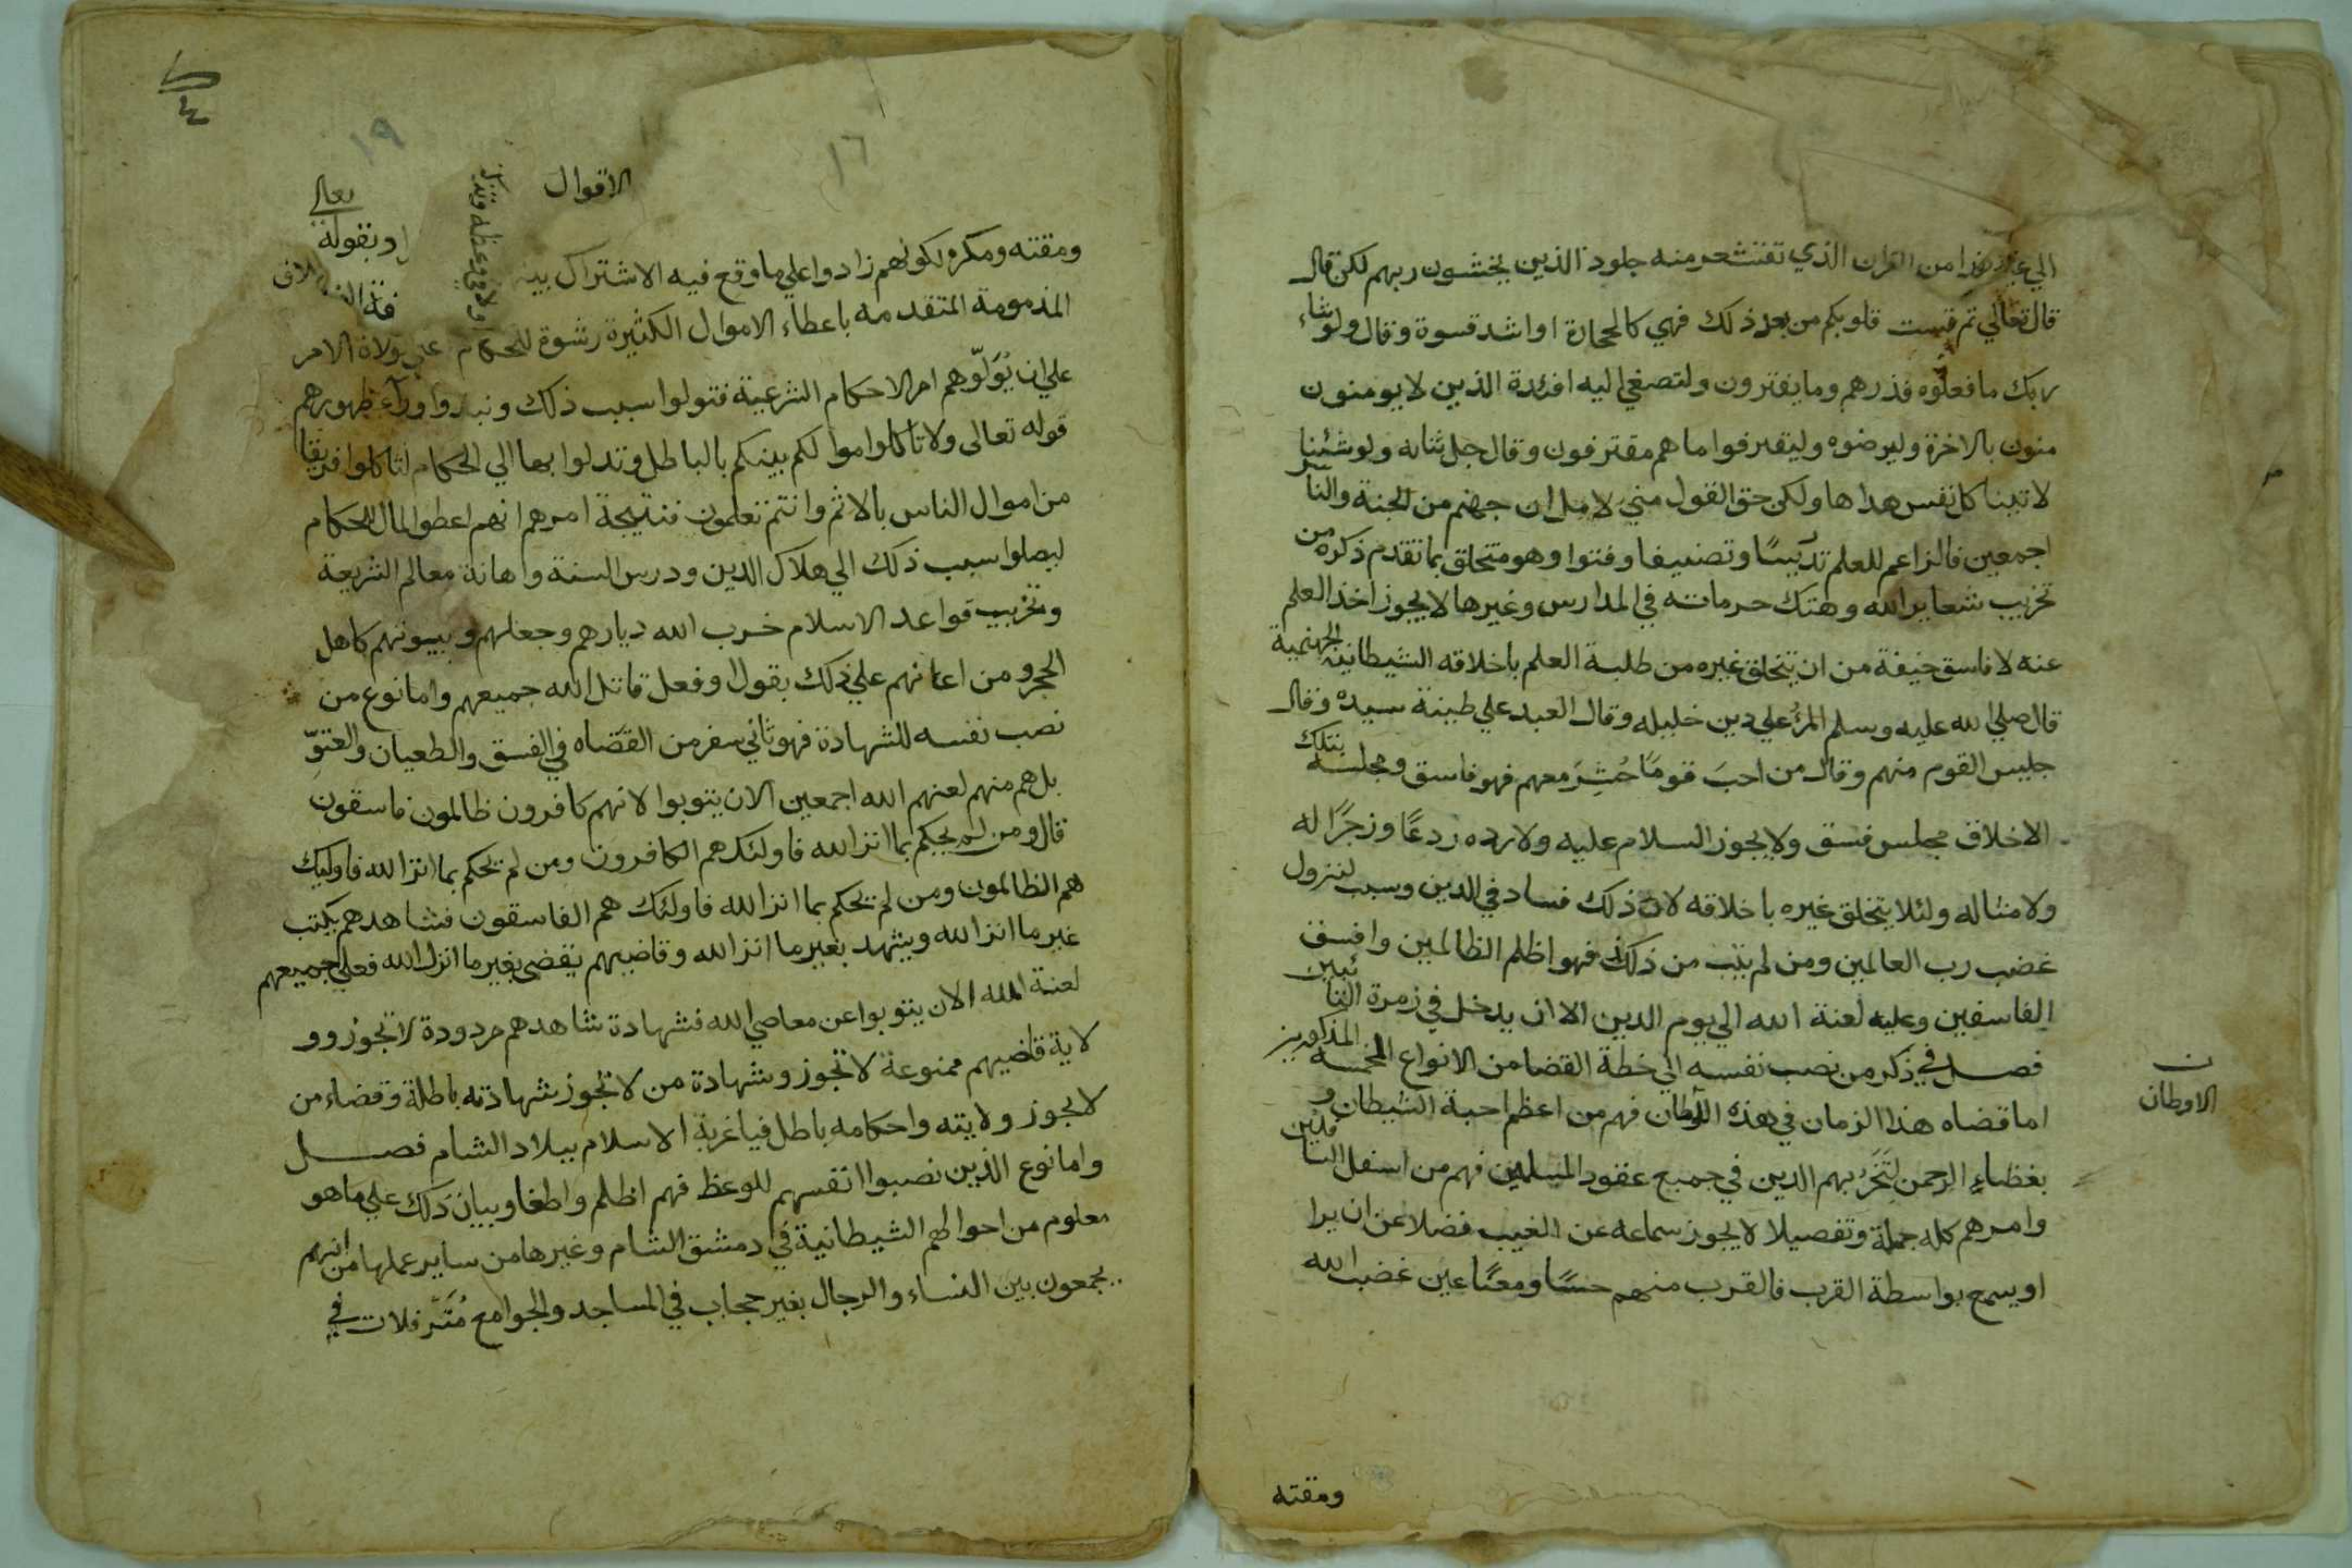 الي غير هذا من القران الذي تقشعر منه جلود الذين يخشون ربهم لكن قال
قال تعالي ثم قست قلوبكم من بعد ذلك فهي كالحجارة او اشد قسوة وقال ولو شاء
ربك ما فعلوه فذرهم وما يفترون ولتصغي اليه افئدة الذين لا يومنون
منون بالاخرة وليرضوه وليقترفوا ما هم مقترفون وقال جل ثناله ولو شئنا
لاتينا كل نفس هداها ولكن حق القول مني لاملان جهنم من الجنة والناس
اجمعين فالزاعم للعلم تدريسا وتصنيفا وفتوا وهو متخلق بما تقدم ذكره من
تخريب شعاير الله وهتك حرماته في المدارس وغيرها لا يجوز اخذ العلم
عنه لا فاسق خيفة من ان يتخلق غيره من طلبة العلم باخلاقه الشيطانية الجهنمية
قال صلي الله عليه وسلم المرء علي دين خليله وقال العبد علي طينة سيده وقال
جليس القوم منهم وقال من احب قوما حشر معهم فهو فاسق ومجلسه بتلك
الاخلاق مجلس فسق ولا يجوز السلام عليه ولا رده ردعا وزجرا له
ولامثاله ولئلا يتخلق غيره باخلاقه لان ذلك فساد في الدين وسبب لنزول
غضب رب العالمين ومن لم يتب من ذلك فهو اظلم الظالمين وافسق
الفاسقين وعليه لعنة الله الي يوم الدين الا ان يدخل في زمرة التائبين
فصل في ذكر من نصب نفسه الي خطة القضا من الانواع الخمسه المذكورين
اما قضاه هذا الزمان في هذه الاوطان فهم من اعظم احبة الشيطان و
بغضاء الرحمن لتخر بهم الدين في جميع عقود المسلمين فهم من اسفل السافلين
وامرهم كله جملة وتفصيلا لا يجوز سماعه عن الغيب فضلا عن ان يرا
او يسمع بواسطة القرب فالقرب منهم حسا ومعنا عين غضب الله
ن
الاوطان
ومقته
١٦
١٩
الاقوال
تعالي
او بقوله
ومقته ومكره لكونهم زادوا علي ما وقع فيه الاشتراك بينه
المذمومة المتقدمه باعطاء الاموال الكثيرة رشوة للحكام علي ولاة الامر
علي ان يولوهم امر الاحكام الشرعية فتولوا بسبب ذلك ونبذوا وراء ظهورهم
قوله تعالى ولا تاكلوا اموالكم بينكم بالباطل وتدلوا بها الي الحكام لتاكلوا فريقا
من اموال الناس بالاثم وانتم تعلمون فنتيجة امرهم انهم اعطوا المال للحكام
ليصلوا بسبب ذلك الي هلاك الدين ودرس السنة واهانة معالم الشريعة
وتخريب قواعد الاسلام خرب الله ديارهم وجعلهم وبيوتهم كاهل
الحجر ومن اعانهم علي ذلك بقول او فعل قاتل الله جميعهم واما نوع من
نصب نفسه للشهادة فهو ثاني سفر من القضاه في الفسق والطغيان والعتو
بل هم منهم لعنهم الله اجمعين الا ان يتوبوا لانهم كافرون ظالمون فاسقون
قال ومن لم يحكم بما انزل الله فاولئك هم الكافرون ومن لم يحكم بما انزل الله فاوليك
هم الظالمون ومن لم يحكم بما انزل الله فاولئك هم الفاسقون فشاهدهم يكتب
غير ما انزل الله ويشهد بغير ما انزل الله وقاضيهم يقضي بغير ما انزل الله فعلي جميعهم
لعنة الله الا ان يتوبوا عن معاصي الله فشهادة شاهدهم مردودة لا تجوز وو
لاية قاضيهم ممنوعة لا تجوز وشهادة من لا تجوز شهادته باطلة وقضاء من
لا يجوز ولايته واحكامه باطل فيا غربة الاسلام ببلاد الشام فصل
واما نوع الذين نصبوا انفسهم للوعظ فهم اظلم واطغا وبيان ذلك علي ما هو
معلوم من احوالهم الشيطانية في دمشق الشام وغيرها من ساير عملها من انهم
يجمعون بين النساء والرجال بغير حجاب في المساجد والجوامع متزفلات في